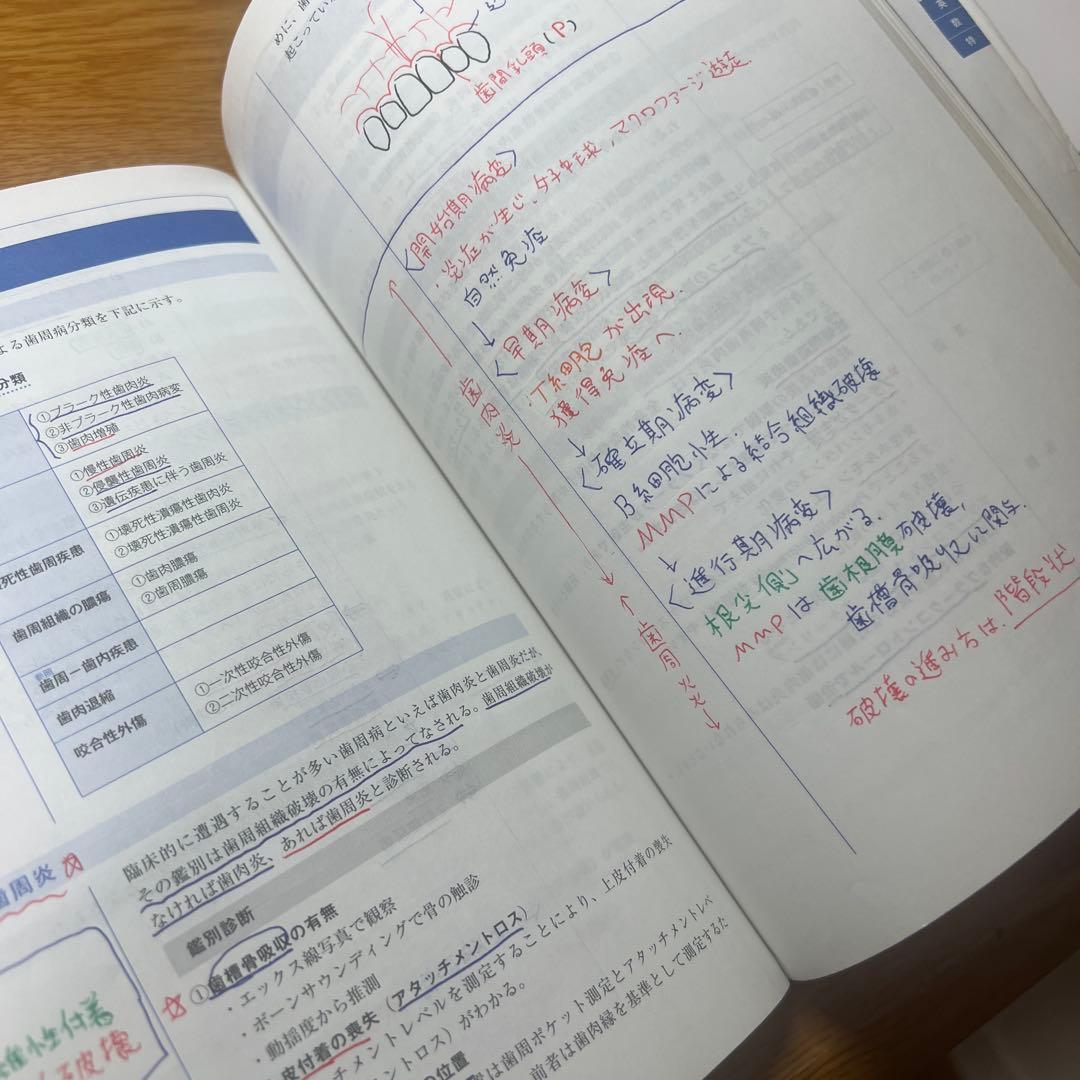 よる歯周病分類を下記に示す。
分類
①プラーク性歯肉炎
②非プラーク性歯肉病変
③歯肉増殖
①慢性歯周炎
②侵襲性歯周炎
③遺伝疾患に伴う歯周炎
死性歯周疾患
①壊死性潰瘍性歯肉炎
②壊死性潰瘍性歯周炎
歯周組織の膿瘍
①歯肉膿瘍
②歯周膿瘍
歯周－歯内疾患
歯肉退縮
咬合性外傷
①一次性咬合性外傷
②二次性咬合性外傷
臨床的に遭遇することが多い歯周病といえば歯肉炎と歯周炎だが、
その鑑別は歯周組織破壊の有無によってなされる。歯周組織破壊が
なければ歯肉炎、あれば歯周炎と診断される。
歯周炎
鑑別診断
①歯槽骨吸収の有無
・エックス線写真で観察
・ボーンサウンディングで骨の触診
・動揺度から推測
皮付着の喪失（アタッチメントロス）
チメントレベルを測定することにより、上皮付着の喪失
チメントロス）がわかる。
の位置
は歯周ポケット測定とアタッチメントレベ
前者は歯肉縁を基準として測定するた
性付着
破壊
めに、歯
起こってい
英
数
特
歯間乳頭(P)
〈開始期病変〉
・炎症が生じ、好中球、マクロファージ遊走
自然免疫
↓
〈早期病変〉
・T細胞が出現
獲得免疫へ
↓
〈確立期病変〉
B細胞性
MMPによる結合組織破壊
↓
〈進行期病変〉
根尖側へ広がる。
MMPは歯根膜破壊、
歯槽骨吸収に関与.
破壊の進み方は、階段状
歯肉炎
歯周炎